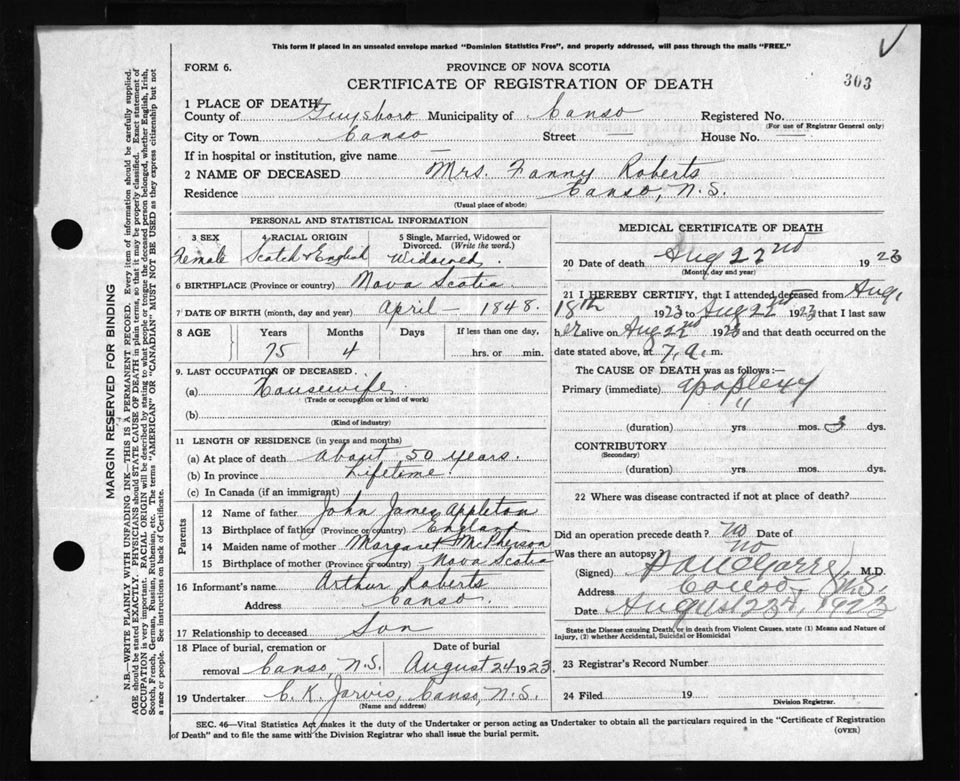 This form if placed in an unsealed envelope marked "Dominion Statistics Free", and properly addressed, will pass through the mails "FREE."
FORM 6.
PROVINCE OF NOVA SCOTIA
CERTIFICATE OF REGISTRATION OF DEATH
303
1 PLACE OF DEATH
County of Guysboro Municipality of Canso Registered No.
(For use of Registrar General only)
City or Town Canso Street House No.
If in hospital or institution, give name —
2 NAME OF DECEASED Mrs. Fanny Roberts
Residence Canso, N.S.
(Usual place of abode)
PERSONAL AND STATISTICAL INFORMATION
3 SEX 4 RACIAL ORIGIN 5 Single, Married, Widowed or Divorced. (Write the word.)
Female Scotch & English Widowed.
6 BIRTHPLACE (Province or country) Nova Scotia
7 DATE OF BIRTH (month, day and year) April – 1848.
8 AGE Years Months Days If less than one day,
75 4 hrs. or min.
9. LAST OCCUPATION OF DECEASED.
(a) Housewife.
(Trade or occupation or kind of work)
(b)
(Kind of industry)
11 LENGTH OF RESIDENCE (in years and months)
(a) At place of death about 50 years.
(b) In province Lifetime.
(c) In Canada (if an immigrant)
Parents
12 Name of father John James Appleton
13 Birthplace of father (Province or country) England
14 Maiden name of mother Margaret McPherson
15 Birthplace of mother (Province or country) Nova Scotia
16 Informant's name Arthur Roberts
Address Canso.
17 Relationship to deceased Son
18 Place of burial, cremation or Date of burial
removal Canso, N.S. August 24 1923.
19 Undertaker C. K. Jarvis, Canso, N.S.
(Name and address)
MEDICAL CERTIFICATE OF DEATH
20 Date of death Aug 22nd 1923
(Month, day and year)
21 I HEREBY CERTIFY, that I attended deceased from Aug.
18th 1923 to Aug 22nd 1923 that I last saw
her alive on Aug 22nd 1923 and that death occurred on
date stated above, at 7 a. m.
The CAUSE OF DEATH was as follows:—
Primary (immediate) apoplexy
"
(duration) yrs mos. 3 dys.
CONTRIBUTORY
(Secondary)
(duration) yrs mos. dys.
22 Where was disease contracted if not at place of death?
Did an operation precede death? no Date of
Was there an autopsy no
(Signed) M.D.
Address Canso, N.S.
Date August 23d, 1923
State the Disease causing Death, or in death from Violent Causes, state (1) Means and Nature of
Injury, (2) whether Accidental, Suicidal or Homicidal
23 Registrar's Record Number
24 Filed 19
Division Registrar.
SEC. 46—Vital Statistics Act makes it the duty of the Undertaker or person acting as Undertaker to obtain all the particulars required in the "Certificate of Registration
of Death" and to file the same with the Division Registrar who shall issue the burial permit.
(OVER)
MARGIN RESERVED FOR BINDING
N.B.—WRITE PLAINLY WITH UNFADING INK—THIS IS A PERMANENT RECORD. Every item of information should be carefully supplied.
AGE should be stated EXACTLY. PHYSICIANS should STATE CAUSE OF DEATH in plain terms, so that it may be properly classified. Exact statement of
OCCUPATION is very important. RACIAL ORIGIN will be described by stating to what people or tongue the deceased person belonged, whether English, Irish,
Scotch, French, German, Russian, Ruthenian, etc. The terms "AMERICAN" OR "CANADIAN" MUST NOT BE USED as they express citizenship but not
a race or people. See instructions on back of Certificate.